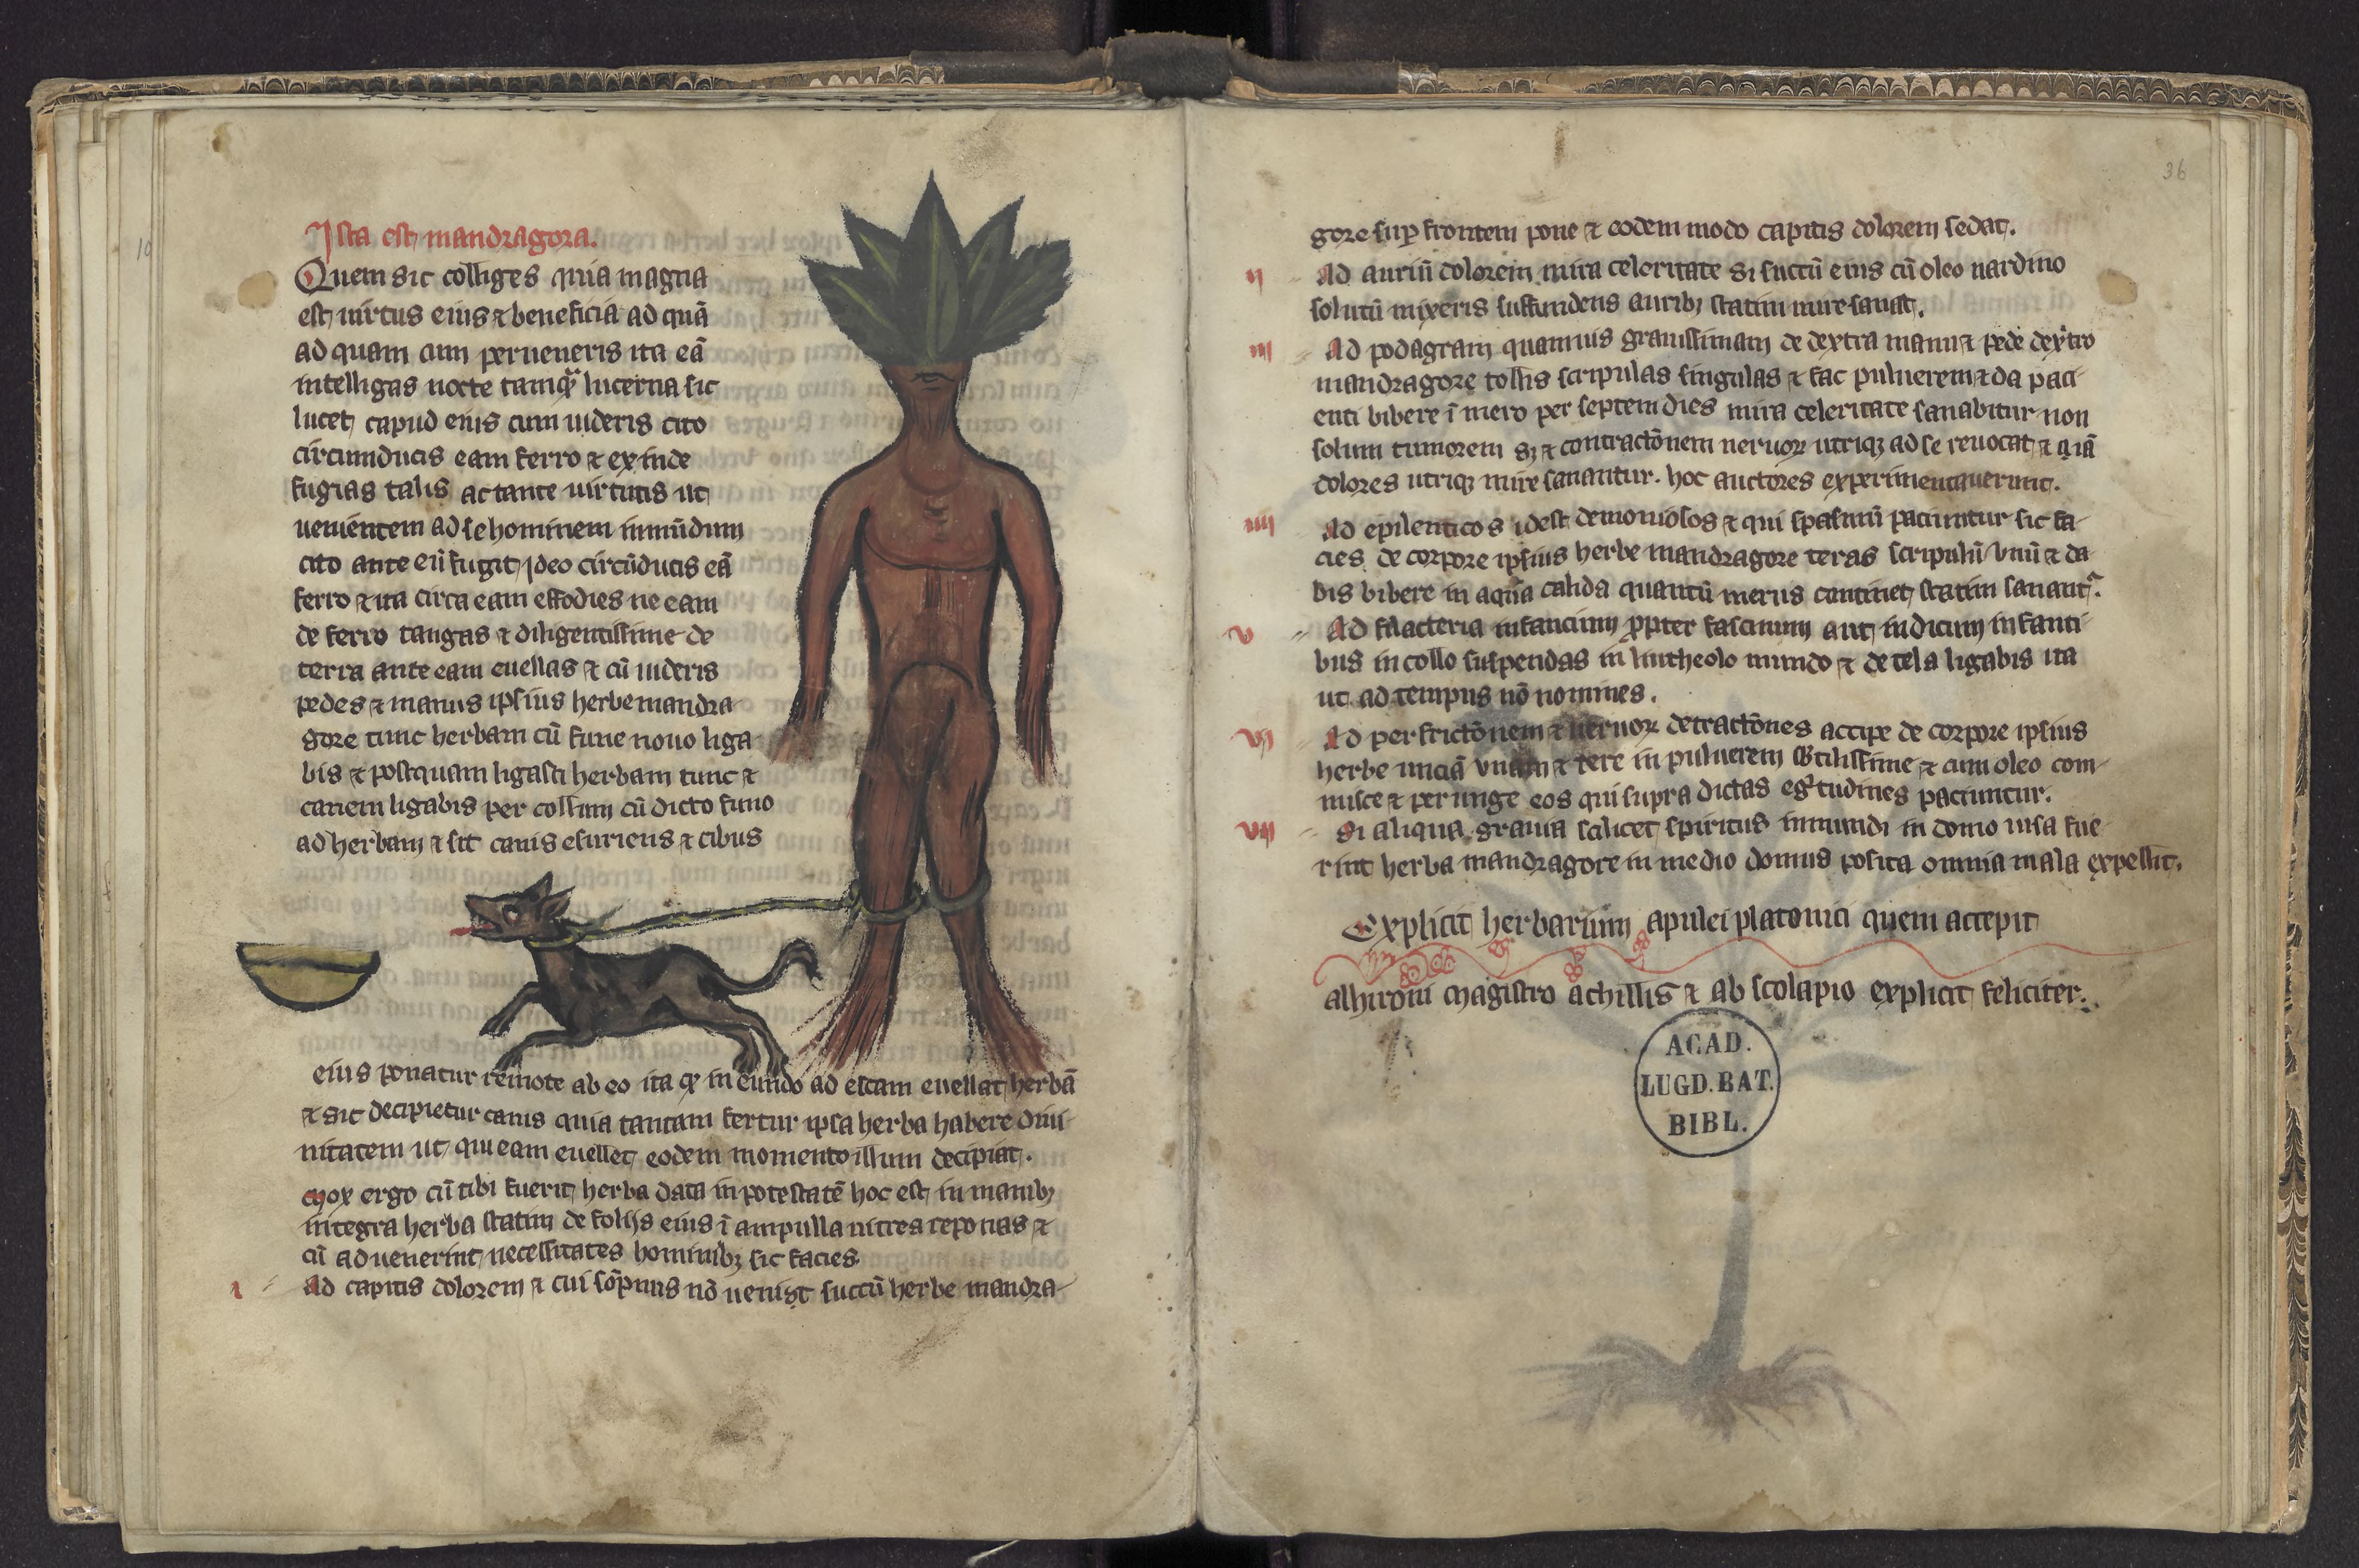 Ista est mandragora.
Quem sic colliges quia magna
est uirtus eius ⁊ beneficia ad quā
ad quam cum perueneris ita eā
intelligas nocte tamq̄ lucerna sic
lucet capud eius cum uideris cito
circumducis eam ferro ⁊ exinde
fugias talis ac tante uirtutis ut
uenientem ad se hominem inmūdum
cito ante eū fugit Ideo circūducis eā
ferro ⁊ ita circa eam effodies ne eam
de ferro tangas ⁊ diligentissime de
terra ante eam euellas ⁊ cū uideris
pedes ⁊ manus ipsius herbe mandra
gore tunc herbam cū fune nouo liga
bis ⁊ postquam ligasti herbam tunc ⁊
canem ligabis per collum cū dicto funo
ad herbam ⁊ sit canis esuriens ⁊ cibus
eius ponatur remote ab eo ita ꝙ in eundo ad escam euellat herbā
⁊ sic decipietur canis quia tantam fertur ipsa herba habere diui
nitatem ut qui eam euellet eodem momento illum decipiat.
Mox ergo cū tibi fuerit herba data in potestatē hoc est in manibꝫ
integra herba statim de foliis eius ī ampulla uitrea reponas ⁊
cū aduenerint necessitates hominibꝫ sic facies
i Ad capitis dolorem ⁊ cui sōpnus nō uenist succū herbe mandra
10
36
gore suꝑ frontem pone ⁊ eodem modo capitis dolorem sedat.
ii Ad auriū dolorem mira celeritate si succū eius cū oleo nardino
solutū mixeris suffundens auribꝫ statim mire sanat.
iii Ad podagram quamuis grauissimam de dextra manu ⁊ pede dextro
mandragore tollis scripulas singulas ⁊ fac puluerem ⁊ da paci
enti bibere ī mero per septem dies mira celeritate sanabitur non
solum tumorem sꝫ ⁊ contractōnem neruoꝝ utriqꝫ ad se reuocat ⁊ quā
dolores utriqꝫ mire sanantur. hoc auctores experimentauerunt.
iiii Ad epilenticos idest demoniosos ⁊ qui spasmū paciuntur sic fa
cies de corpore ipsius herbe mandragore teras scripulū vnū ⁊ da
bis bibere in aqua calida quantū merus continet statim sanant̄.
v Ad filacteria infancium ꝓpter fascinum aut indicum infanti
bus in collo suspendas in lintheolo mundo ⁊ de tela ligabis ita
ut ad tempus nō nomines.
vi Ad perfrictōnem ⁊ neruoꝝ detractōnes accipe de corpore ipsius
herbe unciā vnam ⁊ tere in puluerem subtilissime ⁊ cum oleo com
misce ⁊ perunge eos qui supra dictas egritudines paciuntur.
vii Si aliqua grauia scilicet spiritus inmundi in domo uisa fue
rint herba mandragore in medio domus posita omnia mala expellit.
Explicit herbarium apulei platonici quem accepit
alhironi magistro achillis ⁊ ab scolapio explicit feliciter.
ACAD.
LUGD.BAT.
BIBL.